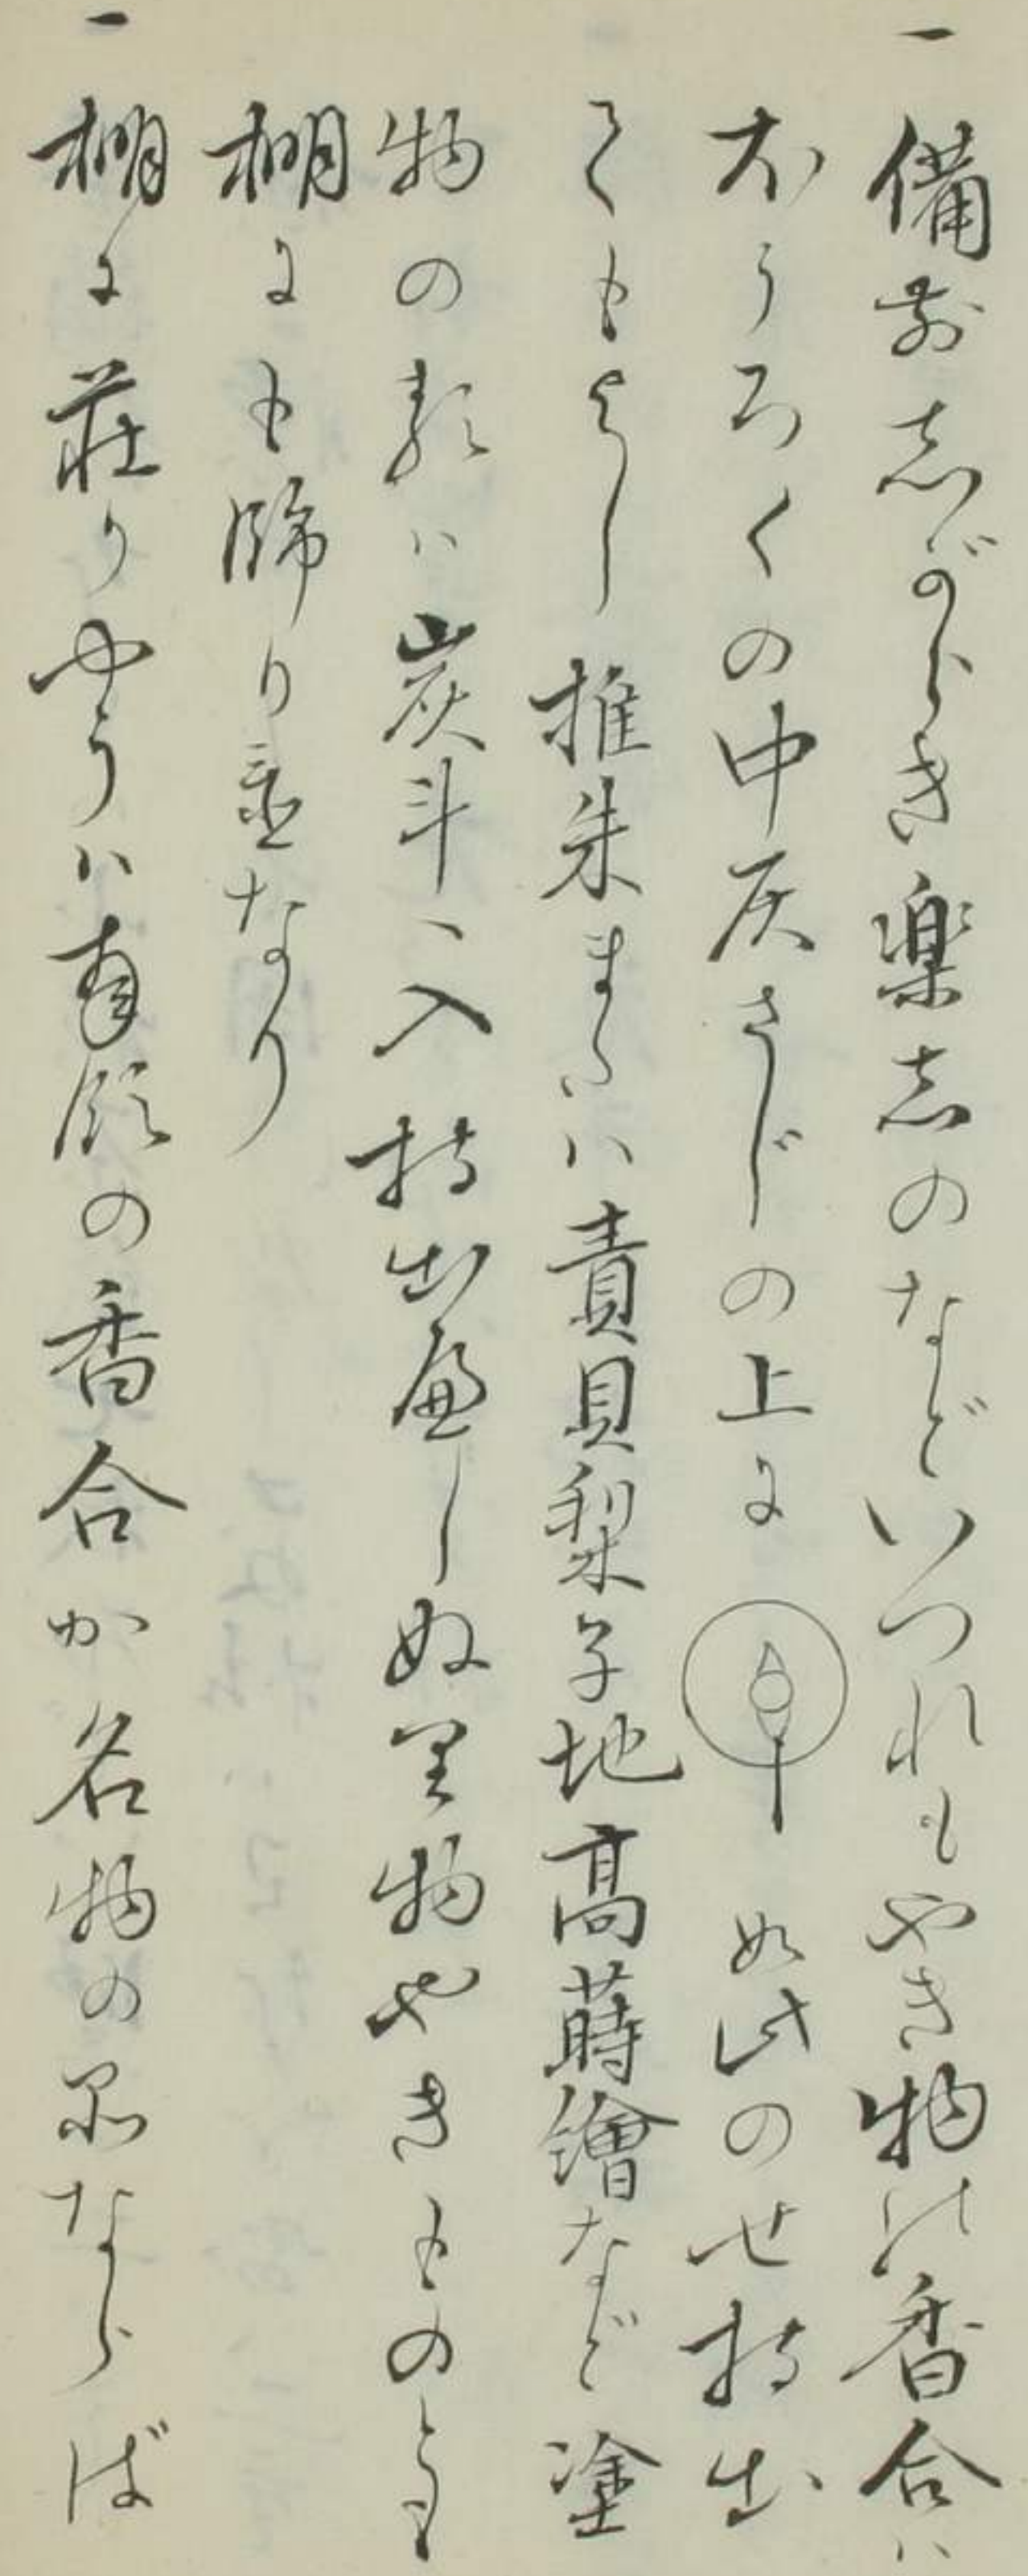 一 備前志がらき楽志のなどいつれもやき物の香合ハ
ほうろくの中灰さじの上に 如此のせ持出
てもよし推朱またハ責貝梨子地高蒔繪など塗
物の類ハ炭斗へ入持出扁しぬり物やきものとも
棚にも餝り置なり
一 棚に荘りやうハ有頭の香合か名物の品ならば